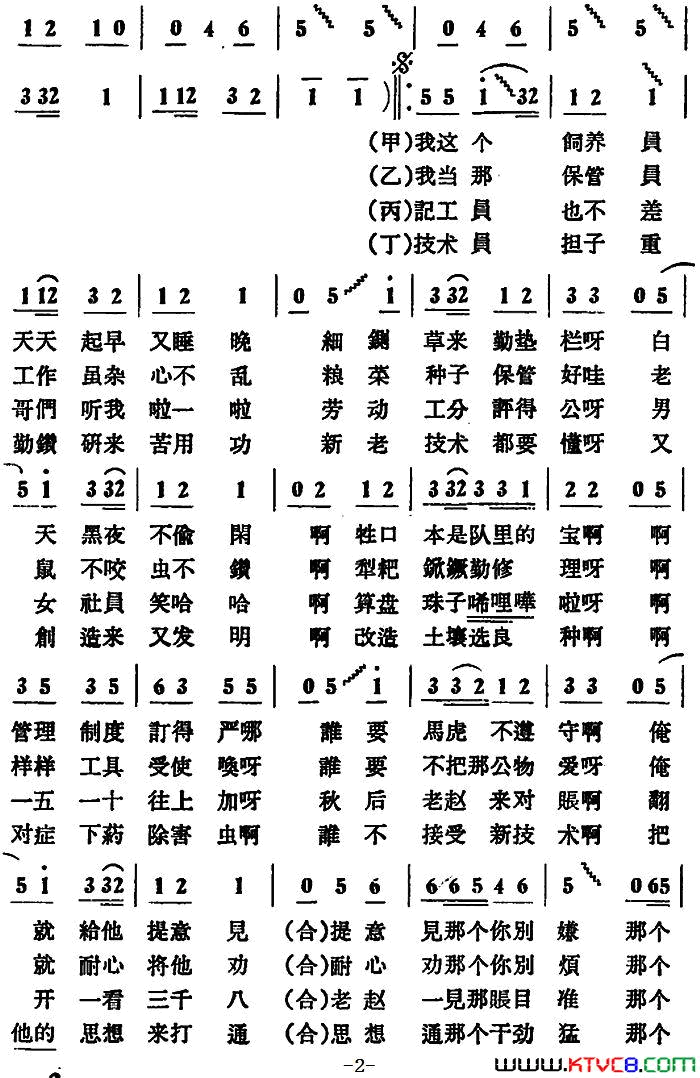 1 2 1 0 | 0 4 6 | 5 5 | 0 4 6 | 5 5
3 32 1 | 1 12 3 2 | 1 1 ) 5 5 1 32 | 1 2 1
(甲)我这个 飼养 員
(乙)我当那 保管 員
(丙)記工員 也不 差
(丁)技术員 担子 重
1 12 3 2 | 1 2 1 | 0 5 1 | 3 32 1 2 | 3 3 0 5
天天 起早 又睡 晚 細 鍘 草来 勤垫 栏呀 白
工作 虽杂 心不 乱 粮 菜 种子 保管 好哇 老
哥們 听我 啦一 啦 劳 动 工分 評得 公呀 男
勤鑽 研来 苦用 功 新 老 技术 都要 懂呀 又
5 1 3 32 | 1 2 1 | 0 2 1 2 | 3 32 3 3 1 | 2 2 0 5
天 黑夜 不偸 閑 啊 牲口 本是队里的 宝啊 啊
鼠 不咬 虫不 鑽 啊 犁耙 鍁鐝勤修 理呀 啊
女 社員 笑哈 哈 啊 算盘 珠子唏哩嘩 啦呀 啊
創 造来 又发 明 啊 改造 土壤选良 种啊 啊
3 5 3 5 | 6 3 5 5 | 0 5 1 | 3 3 2 1 2 | 3 3 0 5
管理 制度 訂得 严哪 誰 要 馬虎 不遵 守啊 俺
样样 工具 受使 喚呀 誰 要 不把那公物 爱呀 俺
一五 一十 往上 加呀 秋 后 老赵 来对 賬啊 翻
对症 下葯 除害 虫啊 誰 不 接受 新技 术啊 把
5 1 3 32 | 1 2 1 | 0 5 6 | 6 6 5 4 6 | 5 0 65
就 給他 提意 見 (合)提 意 見那个你別 嫌 那个
就 耐心 将他 劝 (合)耐 心 劝那个你別 煩 那个
开 一看 三千 八 (合)老 赵 一見那賬目 准 那个
他的 思想 来打 通 (合)思 想 通那个干劲 猛 那个
-2-
www.KTVC8.COM